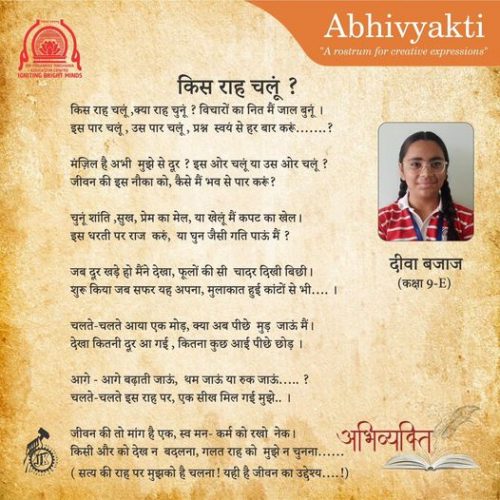 Abhivyakti
"A rostrum for creative expressions"
IGNITING BRIGHT MINDS
किस राह चलूं ?
किस राह चलूं ,क्या राह चुनूं ? विचारों का नित मैं जाल बुनूं ।
इस पार चलूं , उस पार चलूं , प्रश्न स्वयं से हर बार करूं.......?
मंज़िल है अभी मुझे से दूर ? इस ओर चलूं या उस ओर चलूं ?
जीवन की इस नौका को, कैसे मैं भव से पार करूं?
चुनूं शांति ,सुख, प्रेम का मेल, या खेलूं मैं कपट का खेल।
इस धरती पर राज करुं, या घुन जैसी गति पाऊं मैं ?
जब दूर खड़े हो मैंने देखा, फूलों की सी चादर दिखी बिछी।
शुरू किया जब सफर यह अपना, मुलाकात हुई कांटों से भी.... ।
चलते-चलते आया एक मोड़, क्या अब पीछे मुड़ जाऊं मैं।
देखा कितनी दूर आ गई , कितना कुछ आई पीछे छोड़ ।
आगे - आगे बढ़ाती जाऊं, थम जाऊं या रुक जाऊं..... ?
चलते-चलते इस राह पर, एक सीख मिल गई मुझे.. ।
जीवन की तो मांग है एक, स्व मन- कर्म को रखो नेक।
किसी और को देख न बदलना, गलत राह को मुझे न चुनना......
( सत्य की राह पर मुझको है चलना! यही है जीवन का उद्देश्य....!)
दीवा बजाज
(कक्षा 9-E)
अभिव्यक्ति